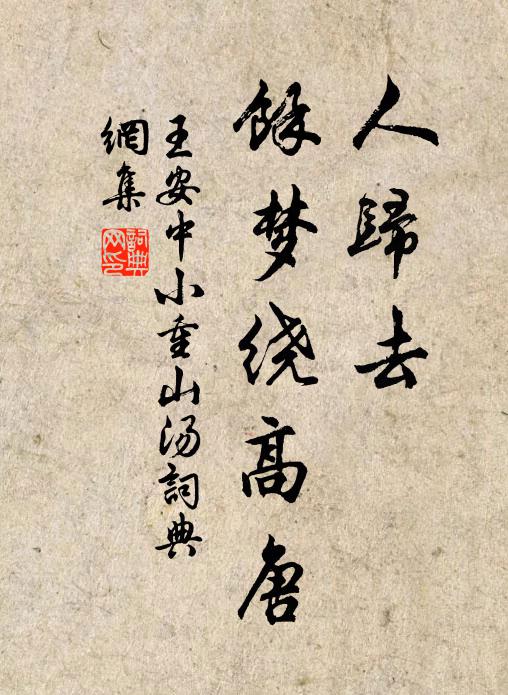 人歸去
餘梦绕高唐
王安中小重山汤詞典
網集
詞典网印